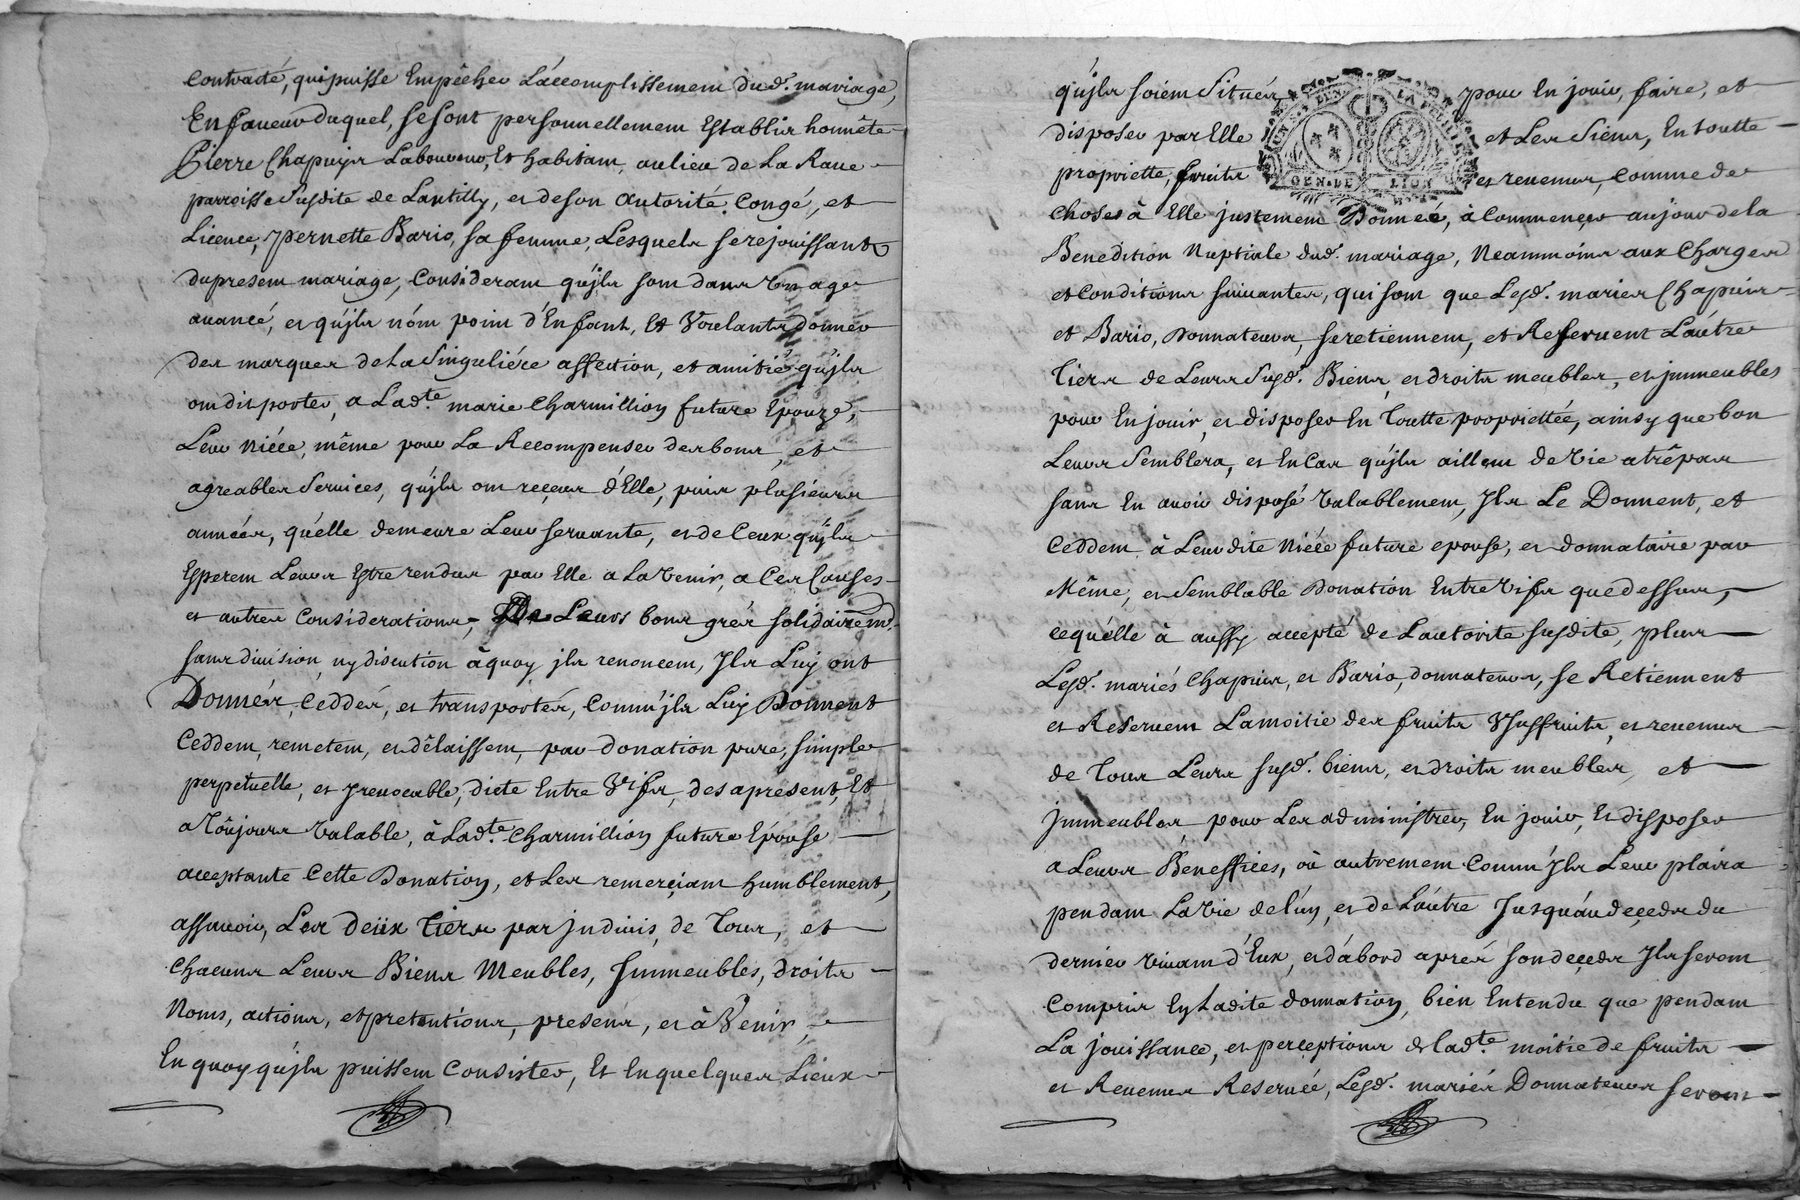 contracté, qui puisse Empêcher L'accomplissement dud.t mariage,
En faveur Duquel, se sont personnellement Establis honnête
Pierre Chapuys Laboureur, Et habitant, au lieu de La Raue
parroisse Susdite de Lantilly, et de son autorité, Congé, et
Licence, pernette Bario, sa femme, Lesquels se rejouissants
du present mariage, Considerant qu'jls sont dans Un age
auancé, et qu'jls n'ont point d'Enfant, Et Voulants donner
des marques de la Singuliére affection, et amitié qu'jls
ont disporter, a Lad.te marie Charmillion future Epouze,
Leur Niéce, même pour La Recompenser des bons, et
agreables Services, qu'jls ont reçeus d'Elle, puis plusieurs
années, qu'elle demeure Leur servante, et de Ceux qu'jls
Esperent Leurs Estre rendus par Elle a L'avenir, a Ces Causes
et autres Considerations, De Leurs bons gréz solidairemt.
sans diuision, ny discution à quoy jls renoncent, Jls Luy ont
Donnés, Ceddés, et transportés, Comm'jls Luy Donnent
Ceddent, remetent, et délaissent, par donation pure, simple
perpetuelle, et jreuocable, dicte Entre Vifs, des apresent, Et
a Toûjours valable, à Lad.te Charmillion future Epouse
acceptante Cette Donation, et Les remerçiant humblement,
assauoir, Les deüx Tiers par jndiuis, de Tous, et
Chacuns Leurs Biens Meubles, Jmmeubles, droits
Noms, actions, et pretentions, presens, et à Venir,
En quoy qu'jls puissent Consister, Et En quelques Lieux
qu'jls soient Situés pour En jouir, faire, et
disposer par Elle et Les Siens, En toutte
proprietté, fruits et reuenus, Comme de
GEN. DE LION
Choses à Elle justement Donneé, à Commençer aujour de la
Benedition Nuptiale dud.t mariage, Neammoins aux Charges
et Conditions suiuantes, qui sont que Lesd.t mariés Chapuis
et Bario, Donnateurs, se retiennent, et Reseruent L'aûtre
Tiers de Leurs Susd.ts Biens, et droits meubles, et jmmeubles
pour En jouir, et disposer En Toutte propriettée, ainsy que bon
Leurs Semblera, et En Cas qu'jls aillent de Vie a trêpas
sans En auoir disposé Valablement, Jls Le Donnent, et
Ceddent à Leur dite Niéce future epouse, et donnataire par
Même, et Semblable Donation Entre Vifs que dessus,
ce qu'elle à aussy accepté de L'autorite susdite, plus
Lesd.t mariés Chapuis, et Bario, donnateurs, se Retiennent
et Reseruent La moitie des fruits Usuffruits, et reuenus
de Tous Leurs susd.t biens, et droits meubles, et
jmmeubles, pour Les administrer, En jouir, Et disposer
a Leurs Bénéffices, où autrement Comm'Jls Leur plaira
pendant La Vie de L'un, et de L'aûtre Jusqu'au deçeds du
dernier Viuant d'Eux, et d'abord aprés son deçeds Jls seront
Compris En Ladite donnation, bien Entendu que pendant
La jouissance, et perceptions de lad.te moitié de fruits
et Reuenus Reseruée, Lesd.t mariés Donnateurs seront